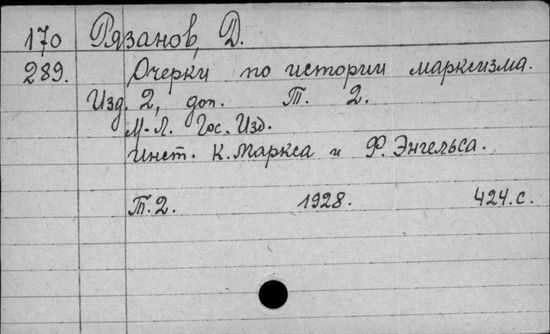 170 Рязанов, Д.
289. Очерки по истории марксизма.
Изд. 2, доп. Т. 2.
М-Л. Гос. Изд.
Инст. К. Маркса и Ф. Энгельса.
Т. 2. 1928. 424. с.